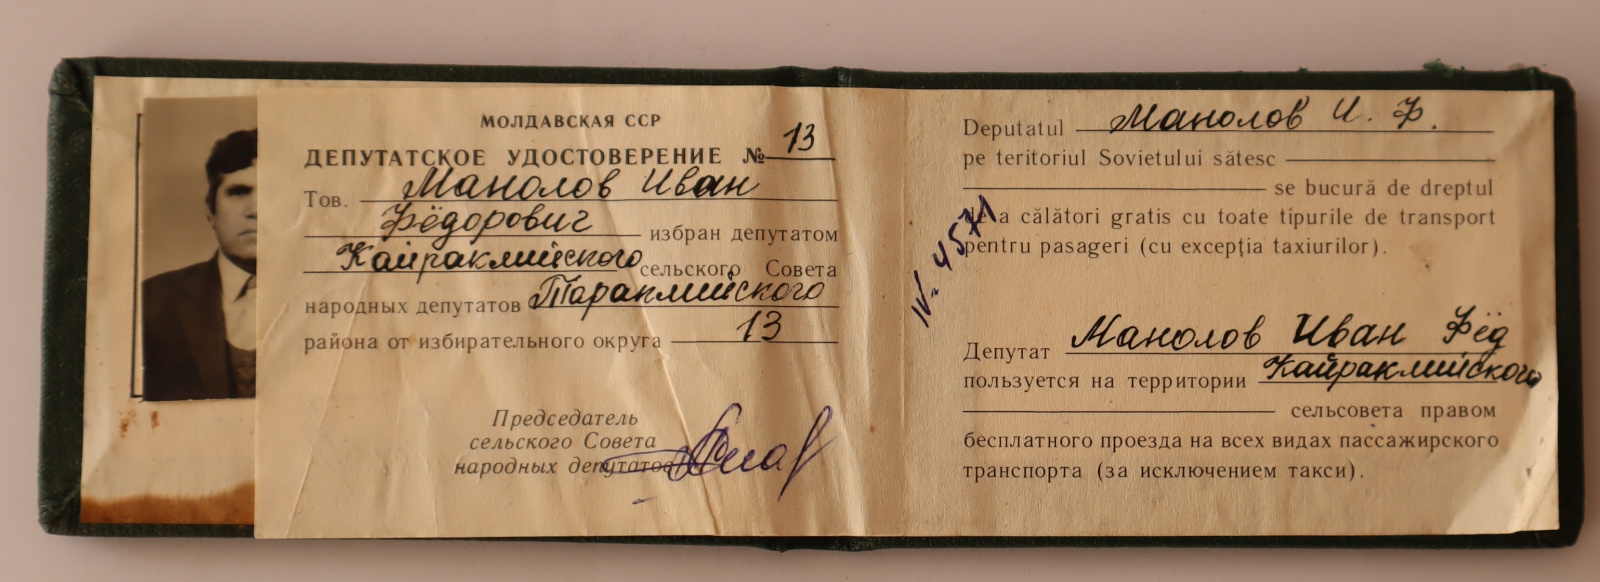 МОЛДАВСКАЯ ССР
ДЕПУТАТСКОЕ УДОСТОВЕРЕНИЕ № 13
Тов. Манолов Иван
Фёдорович избран депутатом
Кайраклийского сельского Совета
народных депутатов Тараклийского
района от избирательного округа 13
Председатель
сельского Совета
народных депутатов
Deputatul Манолов И. Ф.
pe teritoriul Sovietului sătesc
se bucură de dreptul
de a călători gratis cu toate tipurile de transport
pentru pasageri (cu excepția taxiurilor).
IV. 4571
Депутат Манолов Иван Фёд
пользуется на территории Кайраклийского
сельсовета правом
бесплатного проезда на всех видах пассажирского
транспорта (за исключением такси).